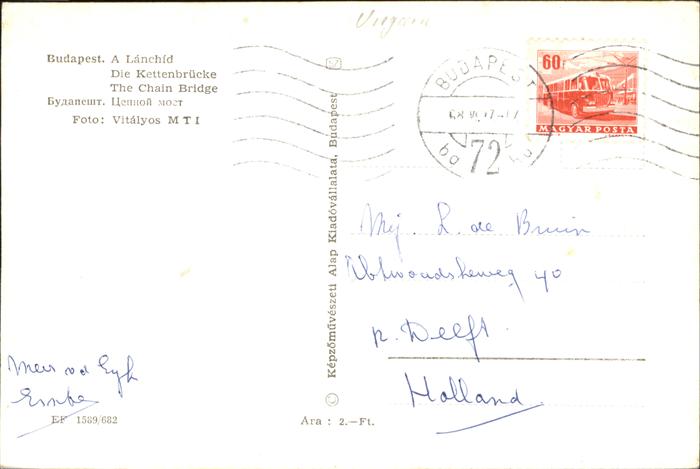 Budapest. A Lánchíd
Die Kettenbrücke
The Chain Bridge
Будапешт. Цепной мост
Foto: Vitályos MTI
Képzőművészeti Alap Kiadóvállalata, Budapest
BUDAPEST
72
60f
MAGYAR POSTA
Mej. L. de Bruin
40
Delft.
Holland
EF 1589/682
Ára : 2.-Ft.